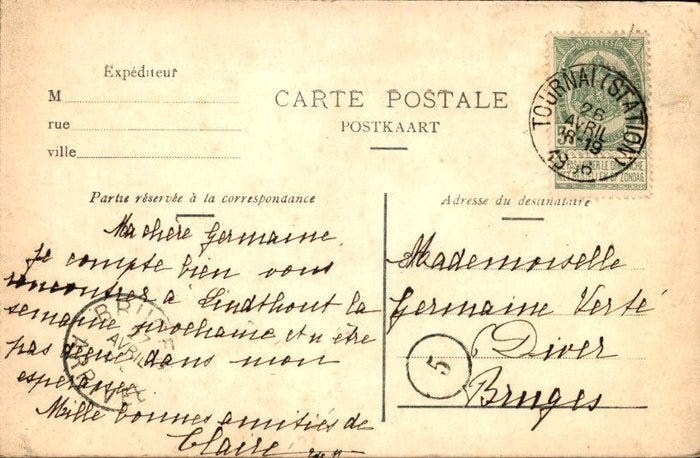 Expéditeur
M
rue
ville
CARTE POSTALE
POSTKAART
POSTES
TOURNAI (STATION)
26
AVRIL
18-19
NE PAS LIVRER LE DIMANCHE
ZONDAG
Partie réservée à la correspondance
Ma chère Germaine,
Je compte bien vous
rencontrer à Lindthout la
semaine prochaine et n'être
pas déçue dans mon
espérance.
Mille bonnes amitiés de
Claire
AVRIL
Adresse du destinataire
Mademoiselle
Germaine Verté
6 Diver
Bruges
5